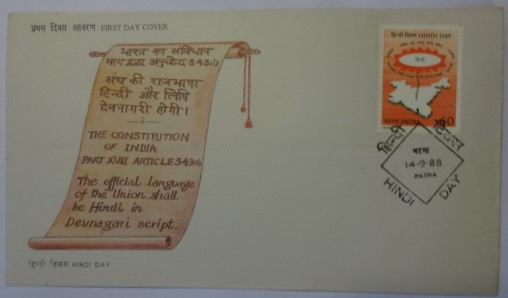 प्रथम दिवस आवरण FIRST DAY COVER
भारत का संविधान
भाग XVII अनुच्छेद 343(1)
संघ की राजभाषा
हिन्दी और लिपि
देवनागरी होगी।
THE CONSTITUTION
OF INDIA
PART XVII ARTICLE 343(1)
The official language
of the Union shall
be Hindi in
Devnagari script.
हिन्दी दिवस HINDI DAY
हिन्दी दिवस HINDI DAY
हिन्दी
भारत INDIA
60
हिन्दी दिवस
पटना
14-9-88
PATNA
HINDI DAY